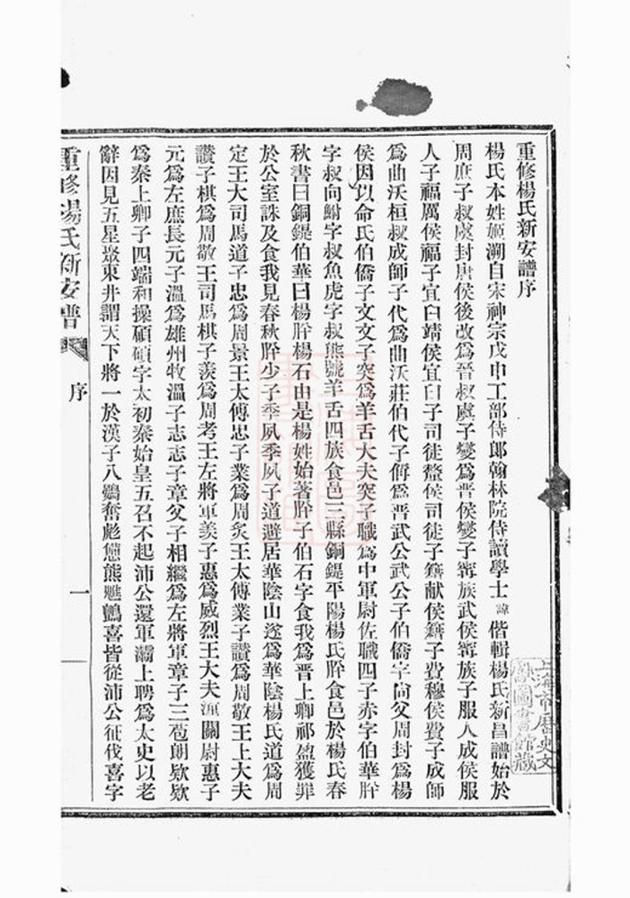 重修楊氏新安譜序
楊氏本姓姬溯自宋神宗戊申工部侍郎翰林院侍讀學士諱偕輯楊氏新昌譜始於
周庶子叔虞封唐侯後改爲晉叔虞子燮爲晋侯燮子甯族武侯甯族子服人成侯服
人子福厲侯福子宜臼靖侯宜臼子司徒釐侯司徒子籍献侯籍子費穆侯費子成師
爲曲沃桓叔成師子代爲曲沃莊伯代子偁爲晋武公武公子伯僑字尙父周封爲楊
侯因以命氏伯僑子文文子突爲羊舌大夫突子職爲中軍尉佐職四子赤字伯華肸
字叔向鮒字叔魚虎字叔熊號羊舌四族食邑三縣銅鍉平陽楊氏肸食邑於楊氏春
秋書曰銅鍉伯華曰楊肸楊石由是楊姓始著肸子伯石字食我爲晋上卿祁盈獲罪
於公室誅及食我見春秋肸少子季夙季夙子道避居華陰山遂爲華陰楊氏道爲周
定王大司馬道子忠爲周景王太傅忠子業爲周炁王太傅業子讚爲周敬王上大夫
讚子棋爲周敬王司馬棋子羨爲周考王左將軍羡子惠爲威烈王大夫洭關尉惠子
元爲左庶長元子溫爲雄州牧溫子志志子章父子相繼爲左將軍章子三苞朗欵欵
爲秦上卿子四端和操碩碩字太初秦始皇五召不起沛公還軍灞上聘爲太史以老
辭因見五星聚東井謂天下將一於漢子八鸚奮彪儵熊魋鶴喜皆從沛公征伐喜字
重修楊氏新安譜
序
一
上海市歷史文
獻圖書館藏